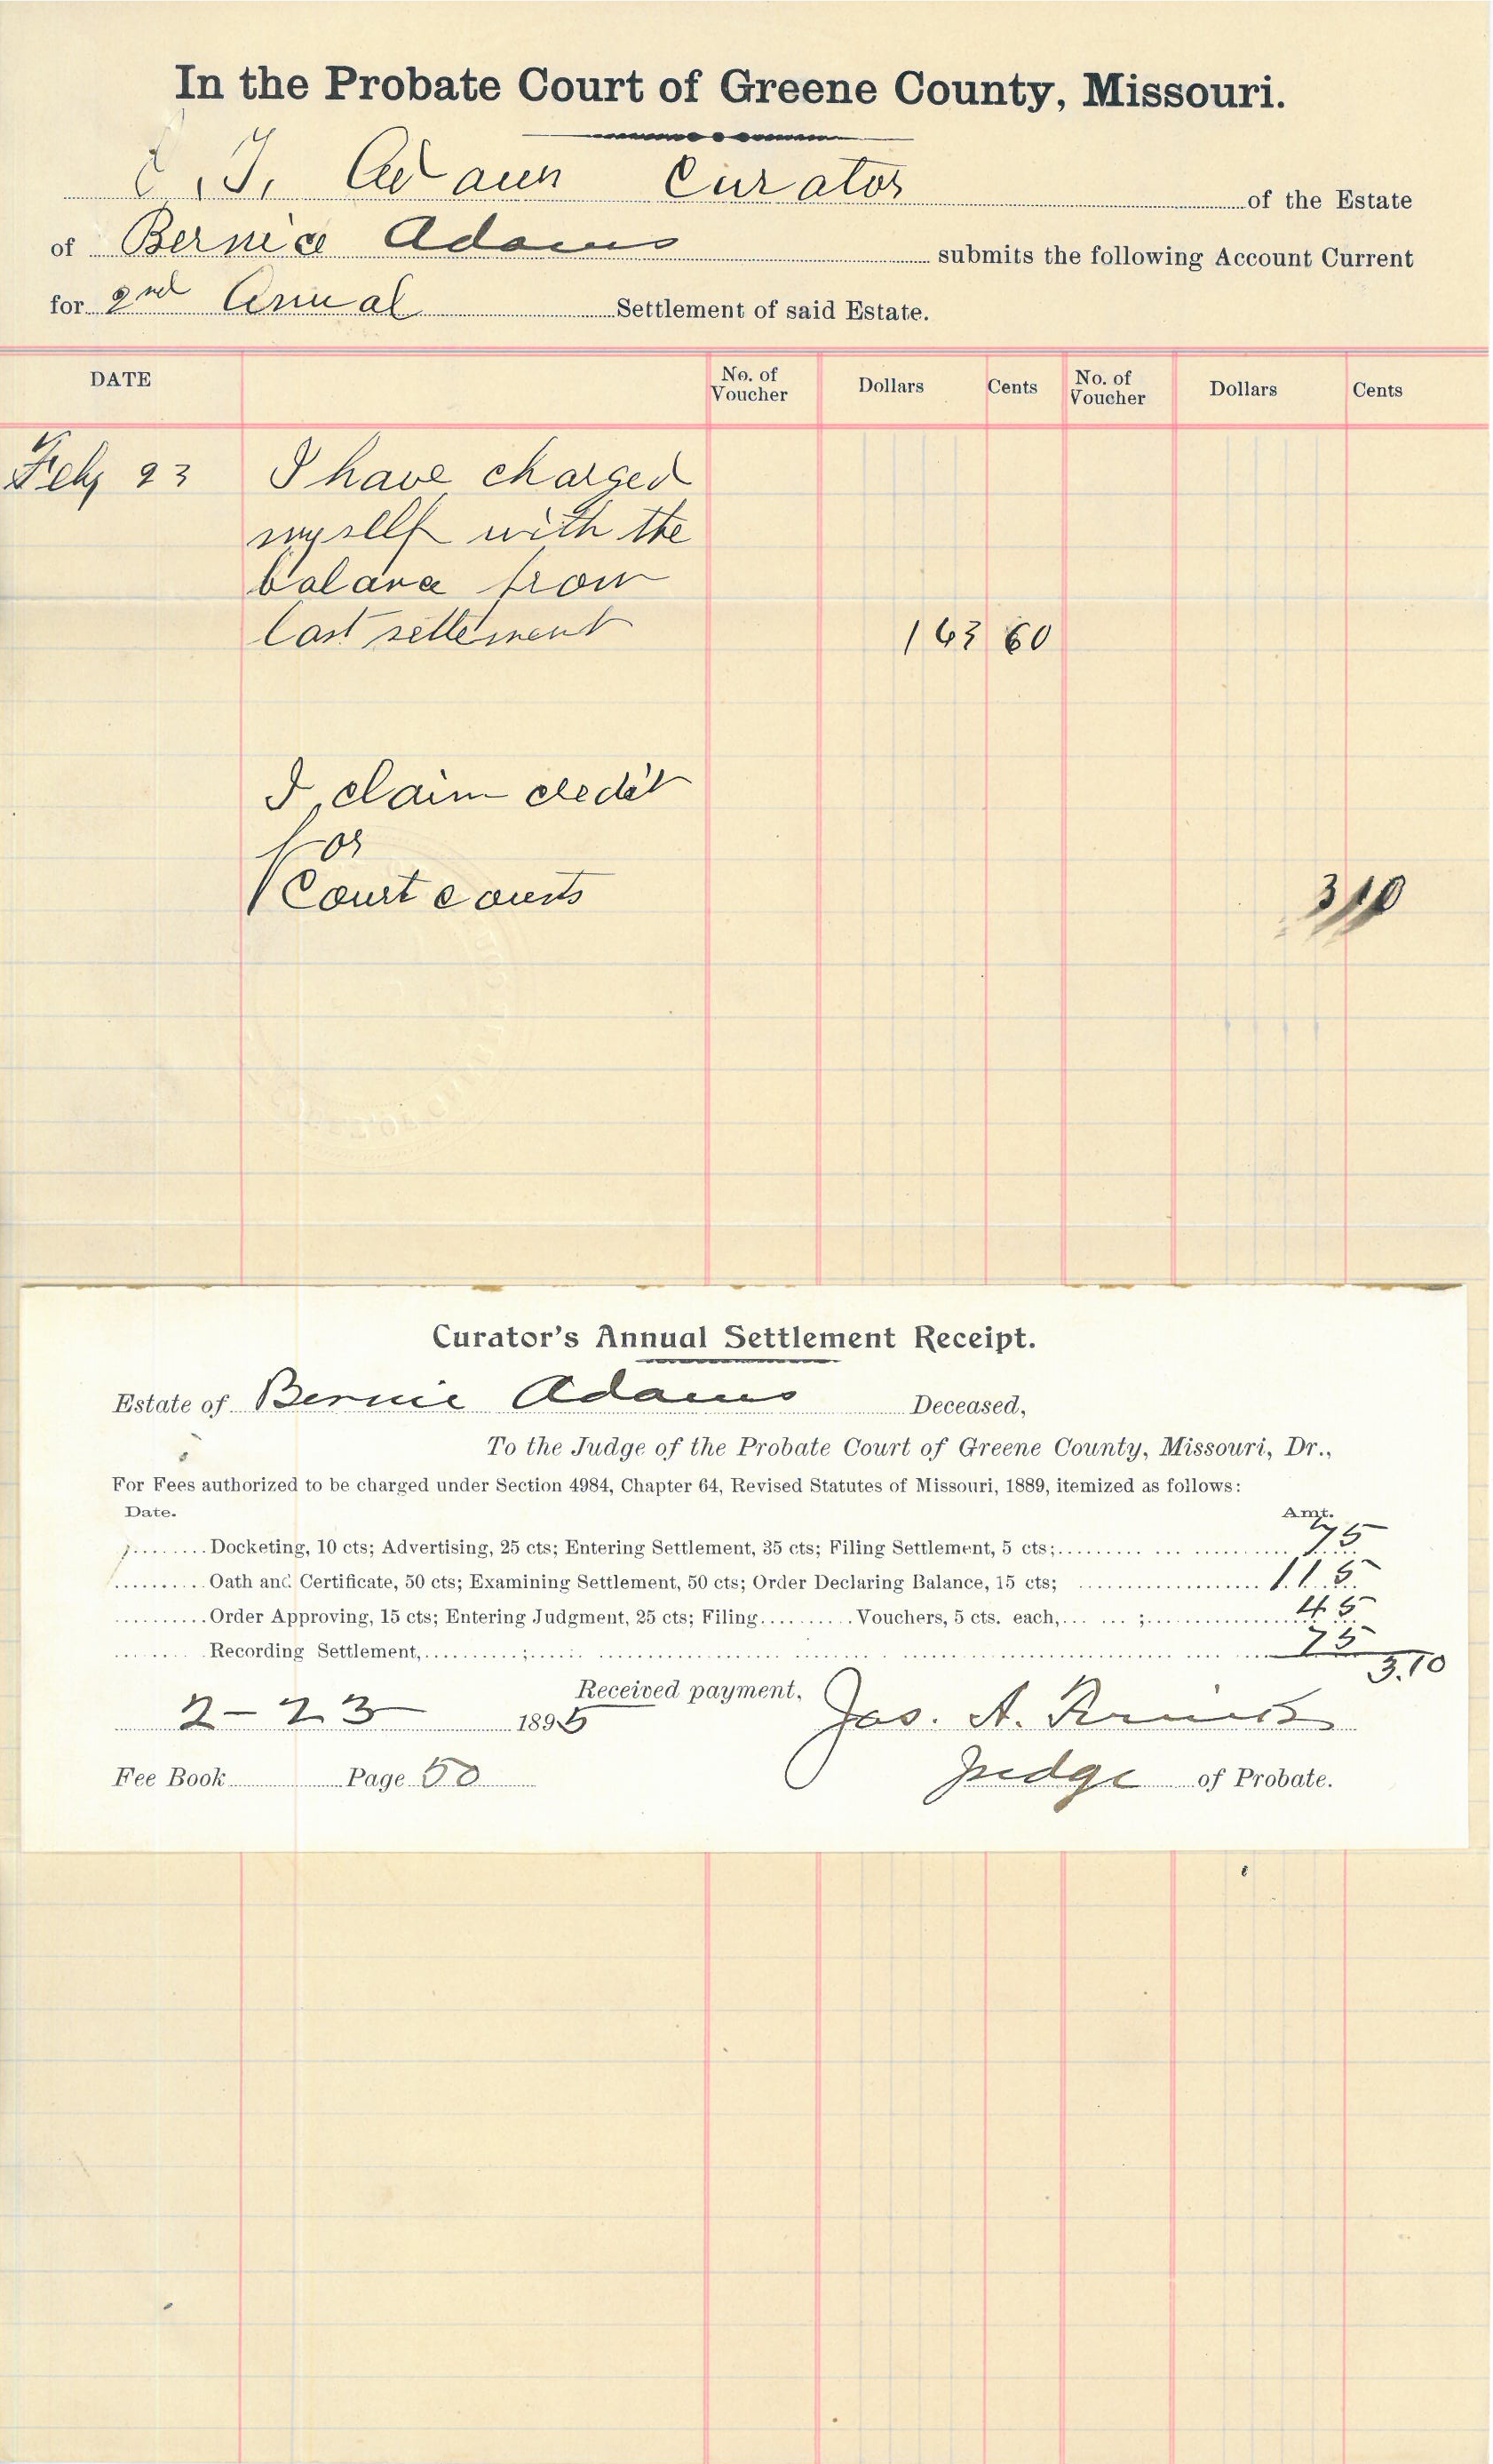 In the Probate Court of Greene County, Missouri.
J. Adams Curator of the Estate
of Bernice Adams submits the following Account Current
for 2nd Annual Settlement of said Estate.
DATE No. of Voucher Dollars Cents No. of Voucher Dollars Cents
Feby 23 I have charged
myself with the
balance from
last settlement 163 60
I claim credit
for
Court cousts 3 10
Curator's Annual Settlement Receipt.
Estate of Bernie Adams Deceased,
To the Judge of the Probate Court of Greene County, Missouri, Dr.,
For Fees authorized to be charged under Section 4984, Chapter 64, Revised Statutes of Missouri, 1889, itemized as follows:
Date. Amt.
Docketing, 10 cts; Advertising, 25 cts; Entering Settlement, 35 cts; Filing Settlement, 5 cts; 75
Oath and Certificate, 50 cts; Examining Settlement, 50 cts; Order Declaring Balance, 15 cts; 1.15
Order Approving, 15 cts; Entering Judgment, 25 cts; Filing Vouchers, 5 cts. each, ; 45
Recording Settlement, ; 75
3.10
Received payment,
2-23 1895 Jas. A.
Fee Book Page 50 Judge of Probate.